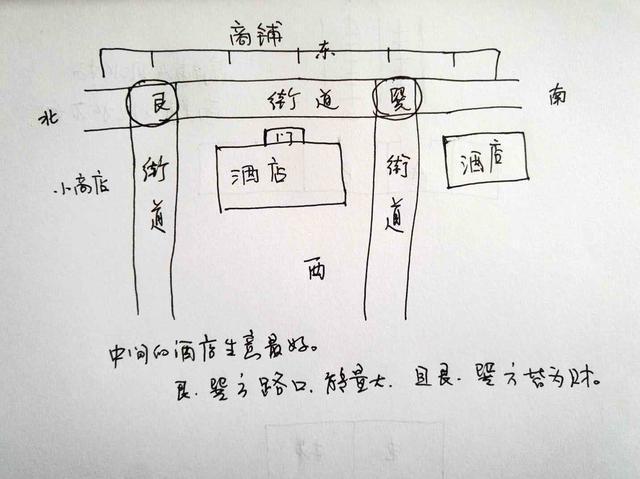 商铺
东
北
艮
街道
巽
南
小商店
街道
门
酒店
街道
酒店
西
中间的酒店生意最好。
艮.巽方路口.能量大.且艮.巽方皆为财。